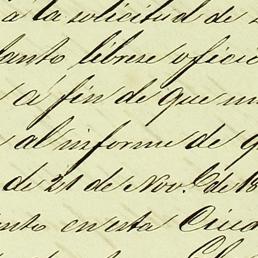 á la solicitud de
tanto librese ofici
á fin de que
al informe de q
de 21 de Nov.e de 18
ento en esta Ciu